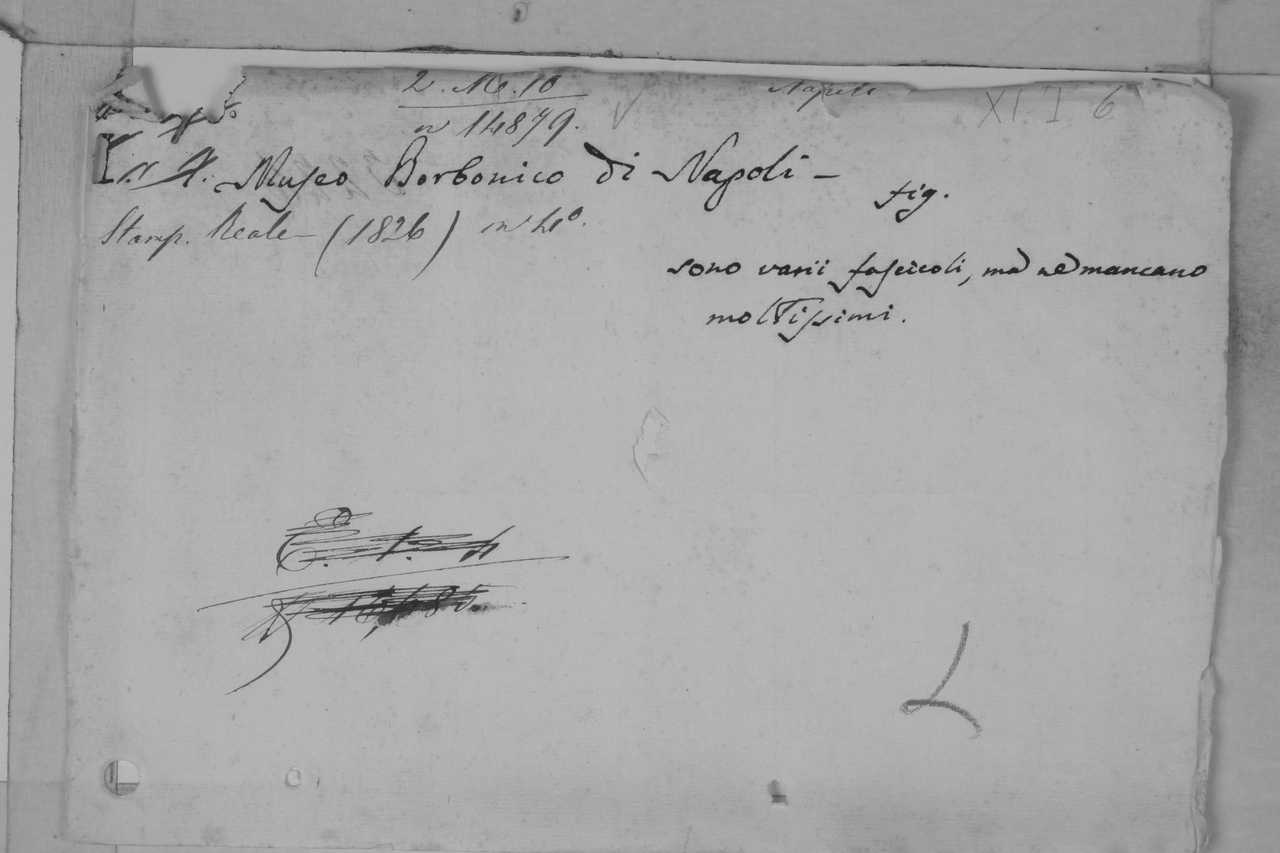 2. M. 10
n 14879.
Napoli
XI. I 6
Museo Borbonico di Napoli -
fig.
Stamp. Reale - (1826) in 4º.
sono varii fascicoli, ma ne mancano
moltissimi.
L